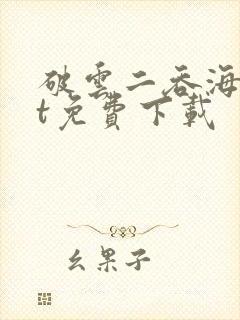 破雲二吞海
t免費下載
幺果子